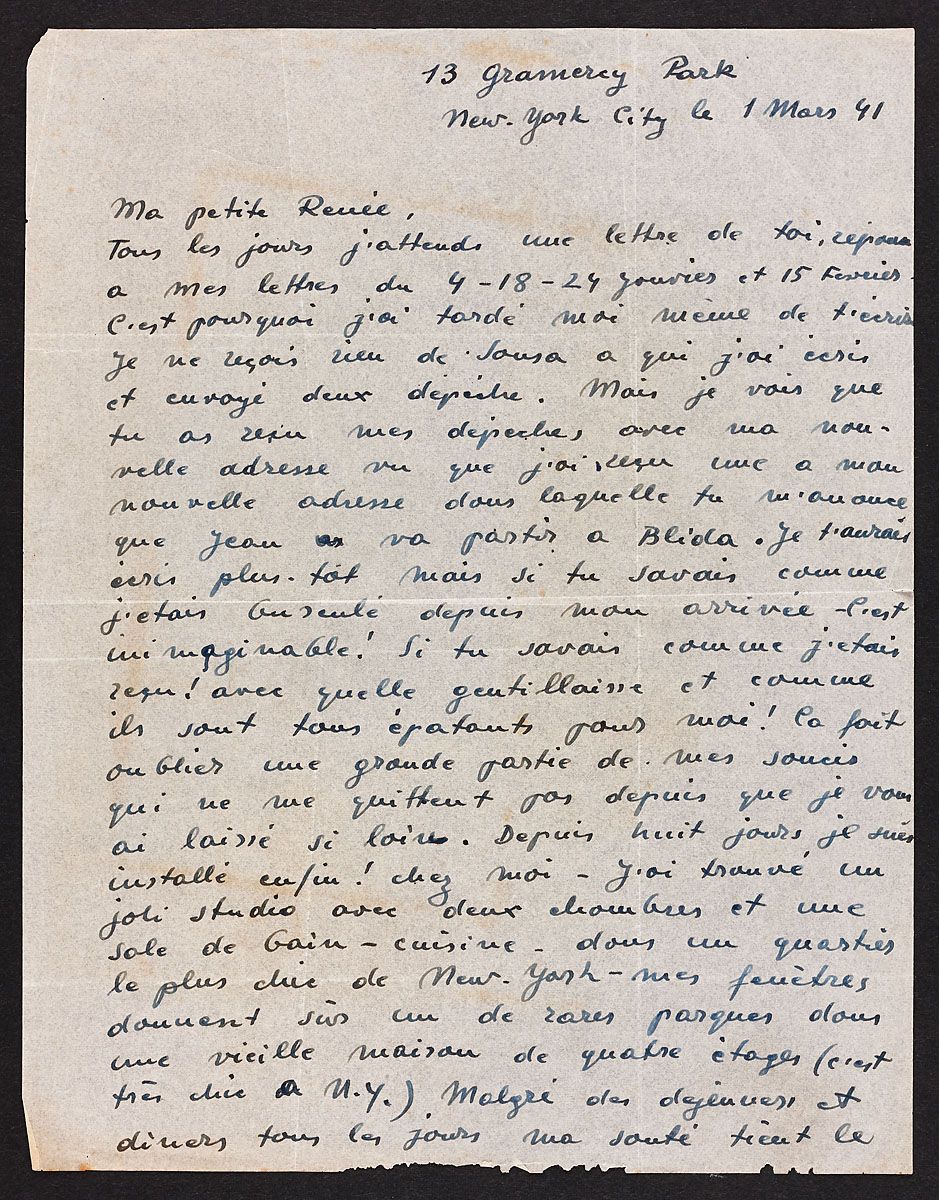 13 Gramercy Park
New-York City le 1 Mars 41
Ma petite Renée,
Tous les jours j'attends une lettre de toi, repons
a mes lettres du 4-18-24 Janvier et 15 Fevrier.
C'est pourquoi j'ai tardé moi même de t'écrire
Je ne reçois rien de Sousa a qui j'ai écris
et envoyé deux dépéche. Mais je vois que
tu as reçu mes depeches avec ma nou-
velle adresse vu que j'ai reçu une a mon
nouvelle adresse dans laquelle tu m'anonce
que Jean va partir a Blida. Je t'aurais
écris plus-tôt mais si tu savais comme
j'etais busculé depuis mon arrivée - C'est
inimaginable! Si tu savais comme j'etais
reçu! avec quelle gentillaisse et comme
ils sont tous épatants pour moi! Ca fait
oublier une grande partie de mes soucis
qui ne me quittent pas depuis que je vous
ai laissé si loin. Depuis huit jours je suis
installé enfin! chez moi - J'ai trouvé un
joli studio avec deux chambres et une
sale de bain - cuisine - dans un quartier
le plus chic de New-York - mes fenêtres
donnent sûr un de rares parques dans
une vieille maison de quatre étages (c'est
très chic a N.Y.) Malgré des dejeuners et
diners tous les jours ma santé tient le